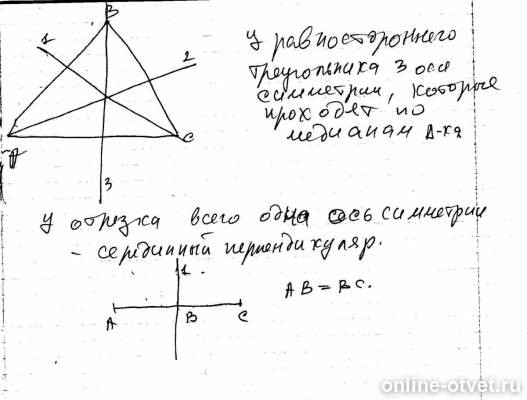 B
1
2
A
C
3
У равностороннего
треугольника 3 оси
симметрии, которые
проходят по
медианам Δ-ка
У отрезка всего одна ось симметрии
- серединный перпендикуляр.
1.
AB = BC.
A
B
C
online-otvet.ru